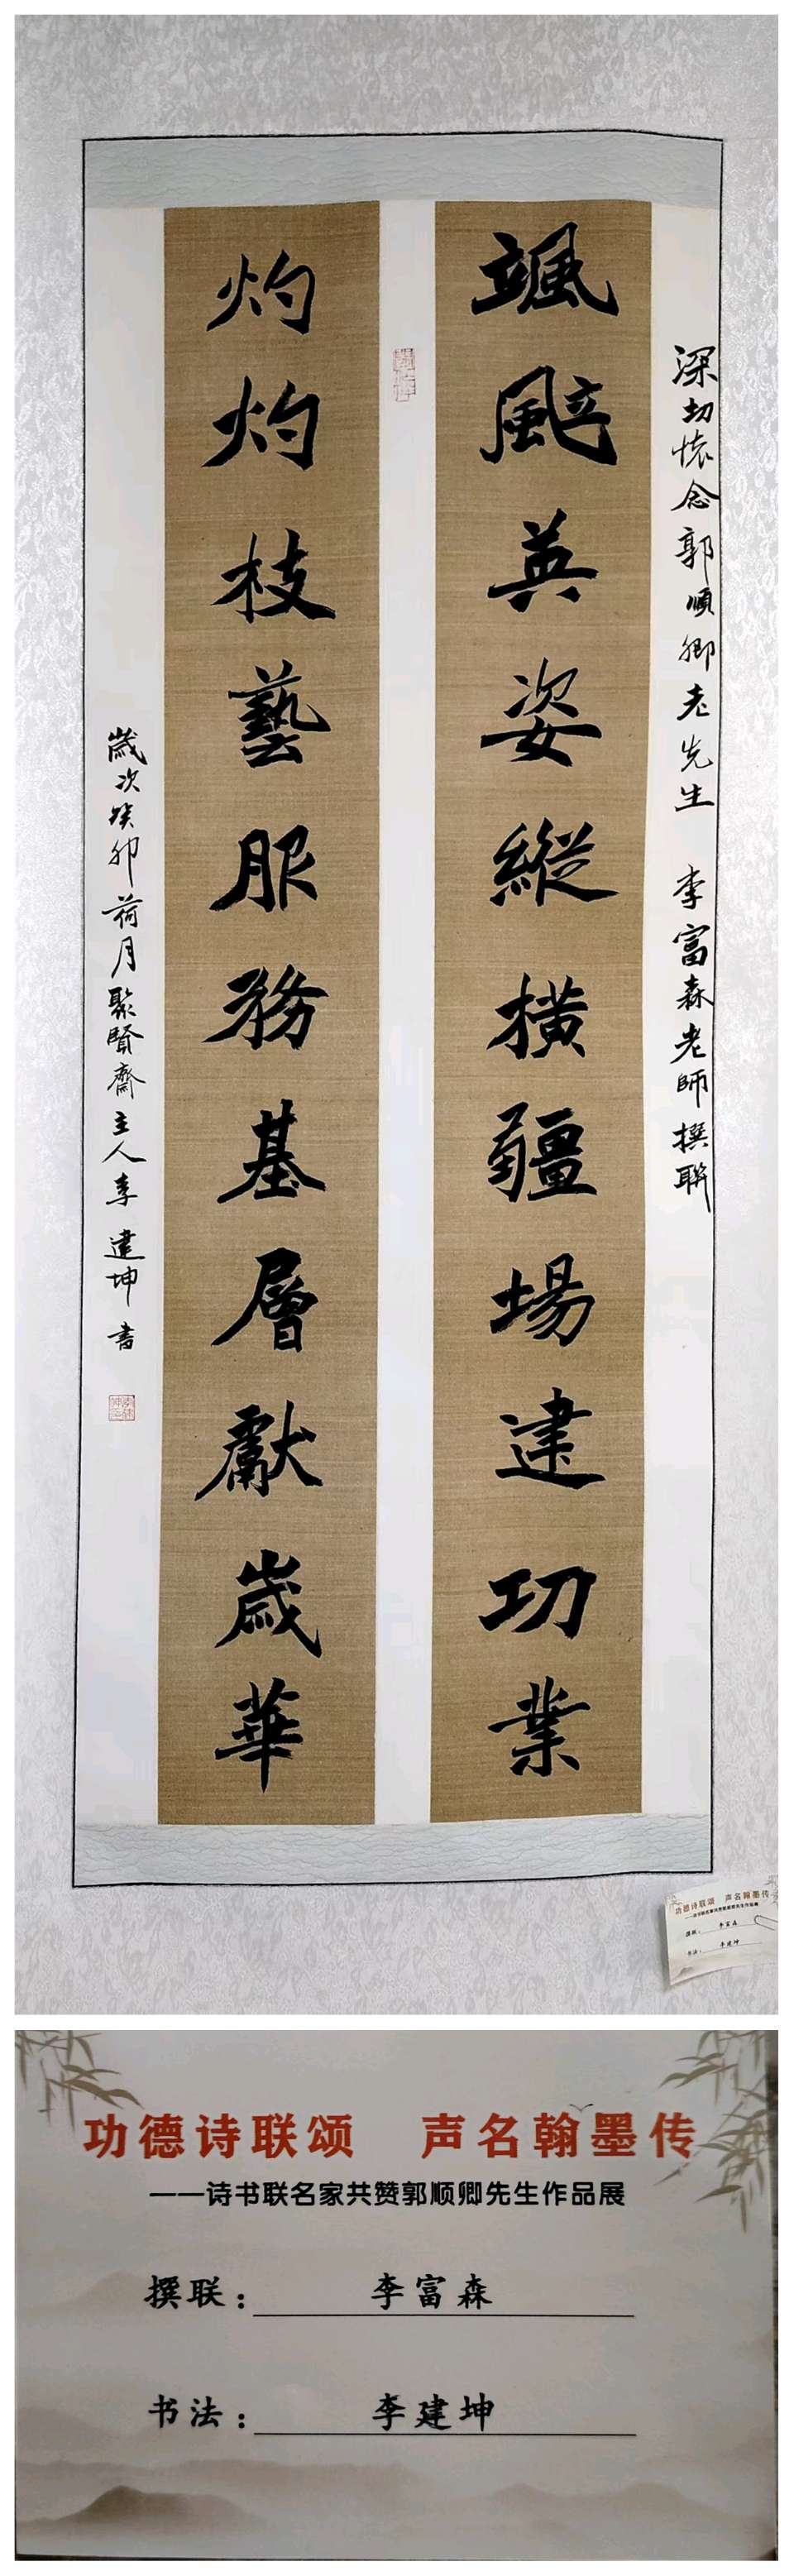 深切懷念郭順卿老先生 李富森老師撰聯
颯颯英姿縱橫疆場建功業
灼灼枝藝服務基層獻歲華
歲次癸卯荷月聚賢齋主人李建坤書
功德诗联颂 声名翰墨传
撰联： 李富森
书法： 李建坤
功德诗联颂 声名翰墨传
——诗书联名家共赞郭顺卿先生作品展
撰联： 李富森
书法： 李建坤